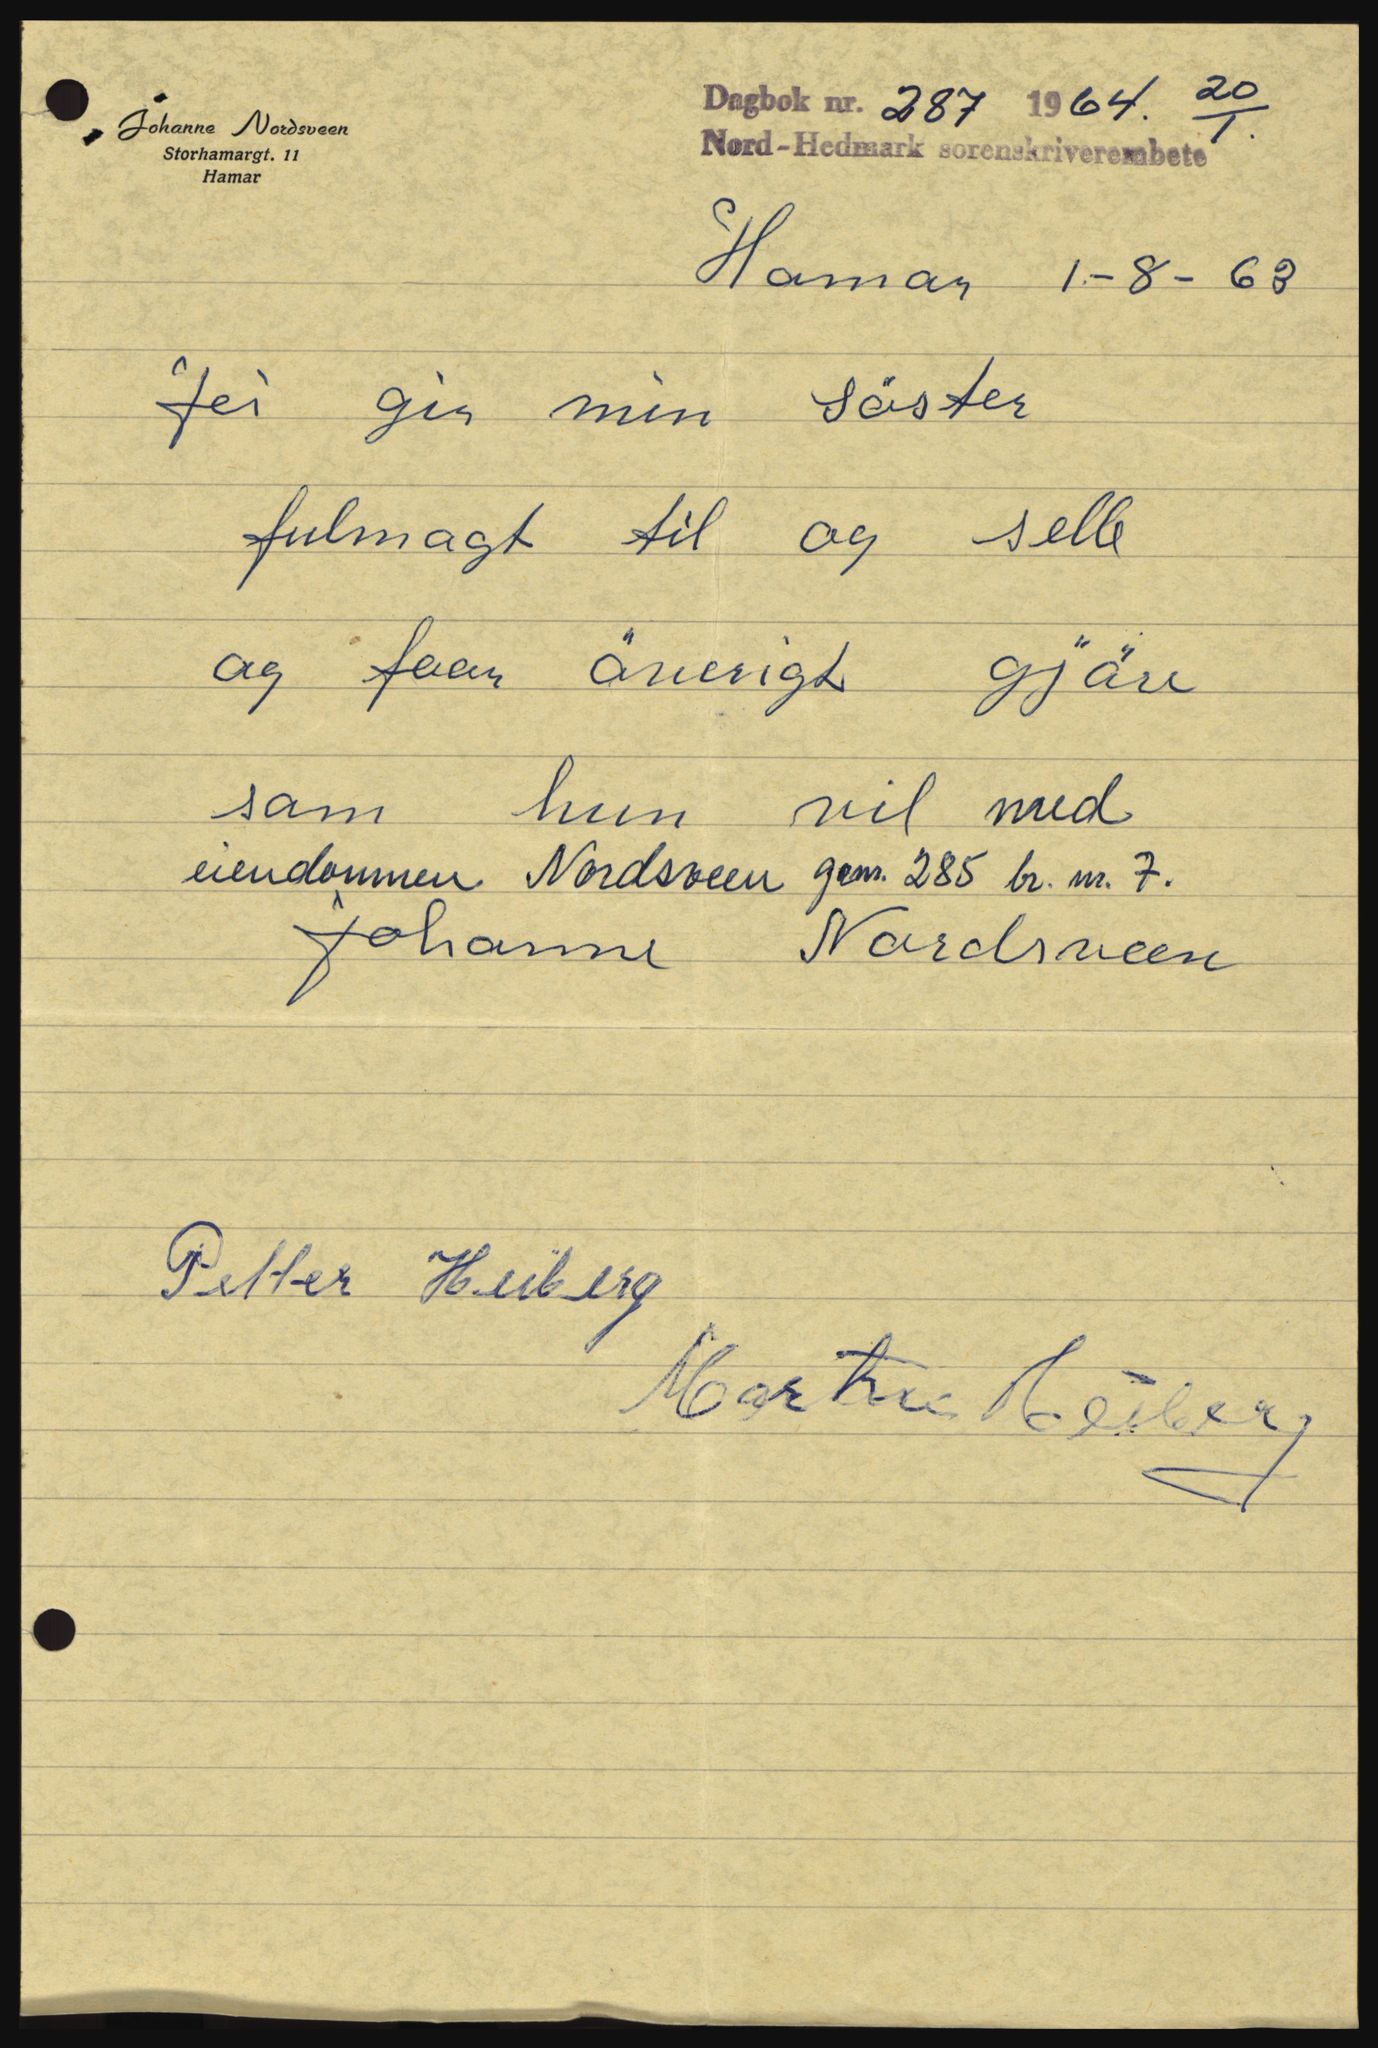 Johanne Nordsveen
Storhamargt. 11
Hamar
Dagbok nr. 287 1964. 20/1.
Nord-Hedmark sorenskriverembete
Hamar 1-8-63
Jei gir min söster
fulmagt til og selle
og foor överigt gjöre
som hun vil med
eiendommen Nordsveen gnr. 285 br. nr. 7.
Johanne Nordsveen
Petter Heiberg
Heiberg